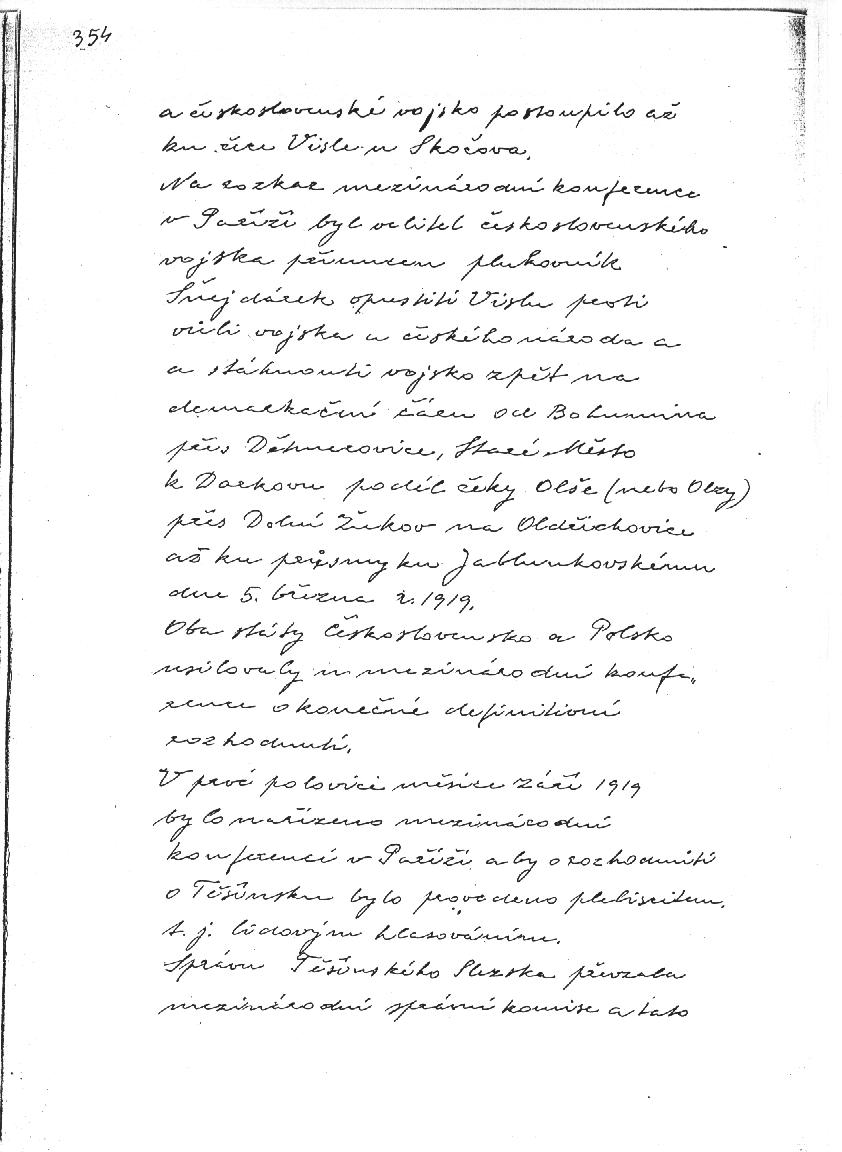 354
a československé vojsko postoupilo až
ku řece Visle u Skočova.
Na rozkaz mezinárodní konference
v Paříži byl velitel československého
vojska přinucen plukovník
Šnejdárek opustiti Vislu proti
vůli vojska a českého národa a
a stáhnouti vojsko zpět na
demarkační čáru od Bohumína
přes Dětmarovice, Staré Město
k Darkovu podél řeky Olše (nebo Olzy)
přes Dolní Žukov na Oldřichovice
až ku průsmyku Jablunkovskému
dne 5. března r. 1919.
Oba státy Československo a Polsko
usilovaly u mezinárodní konfe„
rence o konečné definitivní
rozhodnutí.
V prvé polovici měsíce září 1919
bylo nařízeno mezinárodní
konferencí v Paříži aby o rozhodnutí
o Těšínsku bylo provedeno plebiscitem.
t. j. lidovým hlasováním.
Správu Těšínského Slezska převzala
mezinárodní správní komise a tato